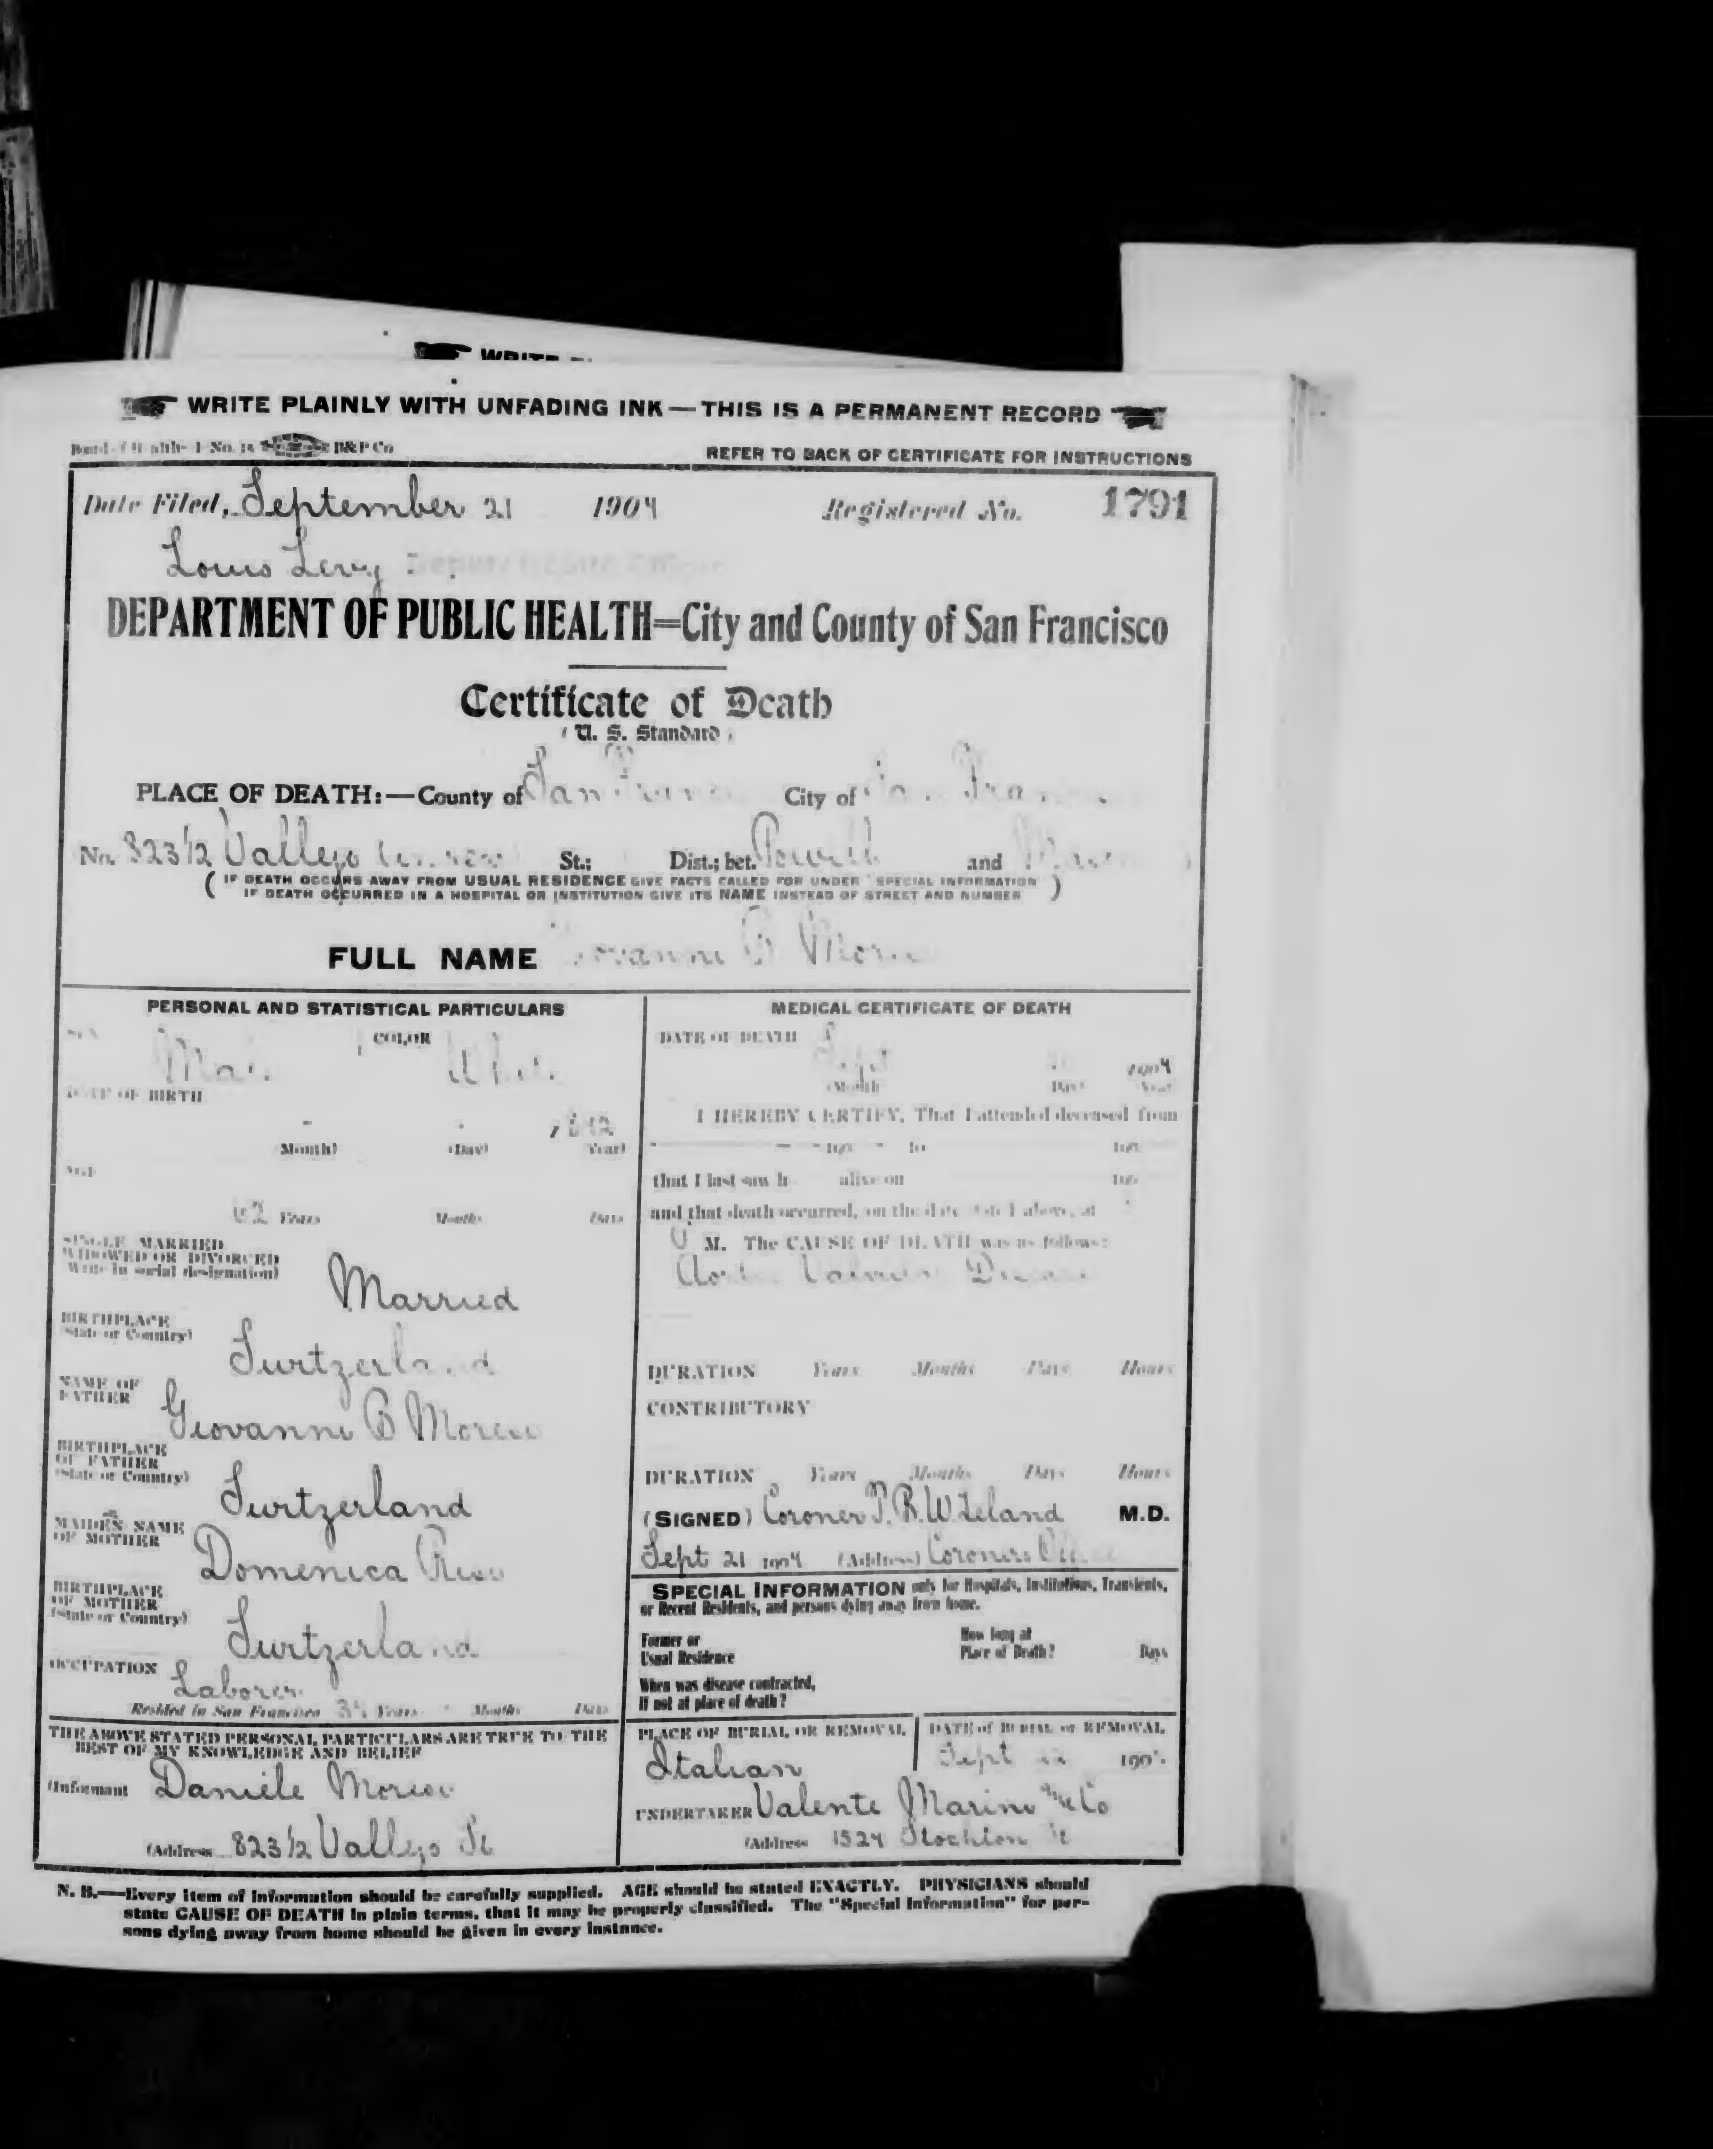 WRITE PLAINLY WITH UNFADING INK — THIS IS A PERMANENT RECORD
B&P Co
REFER TO BACK OF CERTIFICATE FOR INSTRUCTIONS
Date Filed, September 21 1904 Registered No. 1791
Louis Levy Deputy Health Officer
DEPARTMENT OF PUBLIC HEALTH=City and County of San Francisco
Certificate of Death
(U. S. Standard)
PLACE OF DEATH:—County of San City of San
No. 823 1/2 Vallejo St.; Dist.; bet. Powell and
( IF DEATH OCCURS AWAY FROM USUAL RESIDENCE GIVE FACTS CALLED FOR UNDER "SPECIAL INFORMATION" )
( IF DEATH OCCURRED IN A HOSPITAL OR INSTITUTION GIVE ITS NAME INSTEAD OF STREET AND NUMBER )
FULL NAME Giovanni B
PERSONAL AND STATISTICAL PARTICULARS
COLOR
Male White
DATE OF BIRTH
1842
(Month) (Day) (Year)
AGE
62 Years Months Days
SINGLE MARRIED
WIDOWED OR DIVORCED
(Write in social designation)
Married
BIRTHPLACE
(State or Country)
Switzerland
NAME OF
FATHER
Giovanni B
BIRTHPLACE
OF FATHER
(State or Country)
Switzerland
MAIDEN NAME
OF MOTHER
Domenica
BIRTHPLACE
OF MOTHER
(State or Country)
Switzerland
OCCUPATION
Laborer
Resided in San Francisco Years Months Days
THE ABOVE STATED PERSONAL PARTICULARS ARE TRUE TO THE
BEST OF MY KNOWLEDGE AND BELIEF
(Informant Daniele
(Address 823 1/2 Vallejo St
MEDICAL CERTIFICATE OF DEATH
DATE OF DEATH
Sept 1904
(Month) (Day) (Year)
I HEREBY CERTIFY, That I attended deceased from
190 to 190
that I last saw h alive on 190
and that death occurred, on the date stated above, at
M. The CAUSE OF DEATH was as follows:
Aortic Valvular Disease
DURATION Years Months Days Hours
CONTRIBUTORY
DURATION Years Months Days Hours
(SIGNED) Coroner T. B. W. Leland M.D.
Sept 21 1904 (Address) Coroners Office
SPECIAL INFORMATION only for Hospitals, Institutions, Transients,
or Recent Residents, and persons dying away from home.
Former or
Usual Residence
How long at
Place of Death? Days
When was disease contracted,
If not at place of death?
PLACE OF BURIAL OR REMOVAL
Italian
DATE of BURIAL or REMOVAL
Sept 190
UNDERTAKER Valente Marini & Co
(Address 1524 Stockton St
N. B.—Every item of information should be carefully supplied. AGE should be stated EXACTLY. PHYSICIANS should
state CAUSE OF DEATH in plain terms, that it may be properly classified. The "Special Information" for per-
sons dying away from home should be given in every instance.